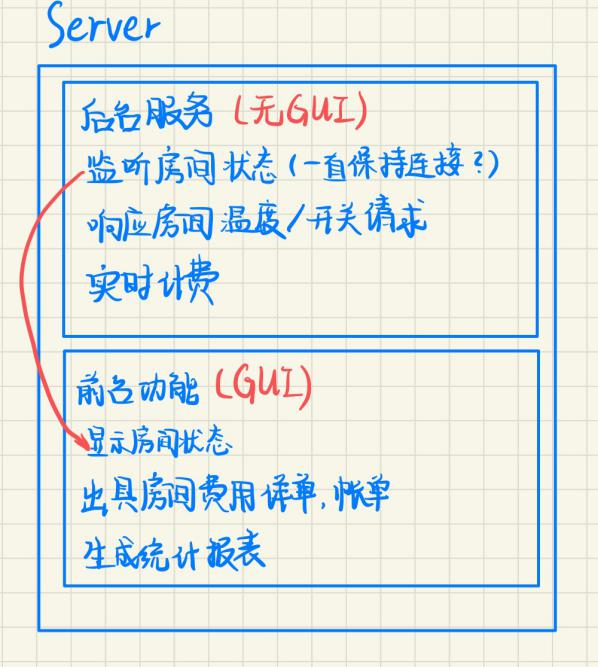 Server
后台服务 (无GUI)
监听房间状态(一直保持连接?)
响应房间温度/开关请求
实时计费
前台功能 (GUI)
显示房间状态
出具房间费用详单,帐单
生成统计报表